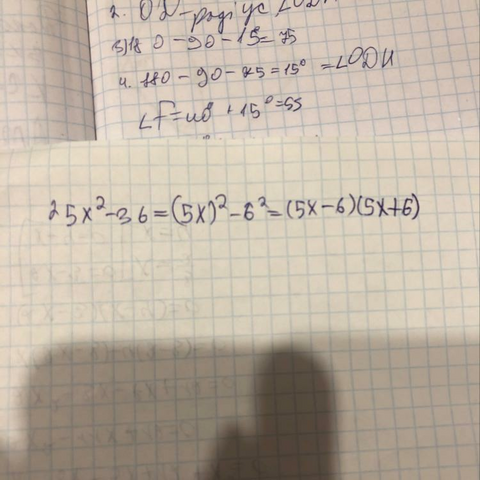 2. OD-радіус
3) 180-90-15=75
4. 180-90-75=15° =∠ODH
∠F=40° +15°=55
25x²-36=(5x)²-6²=(5x-6)(5x+6)